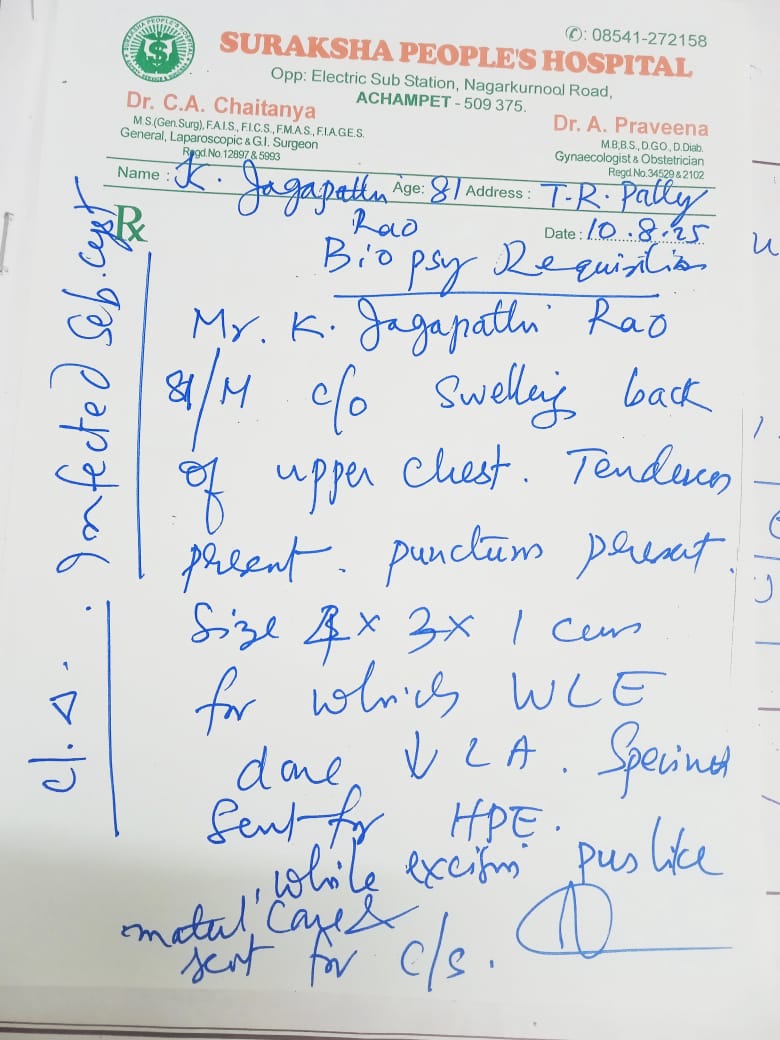 ✆: 08541-272158
SURAKSHA PEOPLE'S HOSPITAL
Opp: Electric Sub Station, Nagarkurnool Road,
ACHAMPET - 509 375.
Dr. C.A. Chaitanya
M.S.(Gen.Surg), F.A.I.S., F.I.C.S., F.M.A.S., F.I.A.G.E.S.
General, Laparoscopic & G.I. Surgeon
Regd.No.12897 & 5993
Dr. A. Praveena
M.B,B.S., D.G.O., D.Diab.
Gynaecologist & Obstetrician
Regd.No.34529 & 2102
Name : K. Jagapathi Rao Age: 81 Address : T.R. Pally
Date : 10.8.25
Rx
Biopsy Requisition
Mr. K. Jagapathi Rao
81/M c/o Swelling back
of upper chest. Tenderness
present. punctum present.
Size 4 x 3 x 1 cms
for which WLE
done ↓ LA. Specimen
Sent for HPE.
while excision pus like
sent for c/s.
cl. Δ. : Infected Seb. cyst